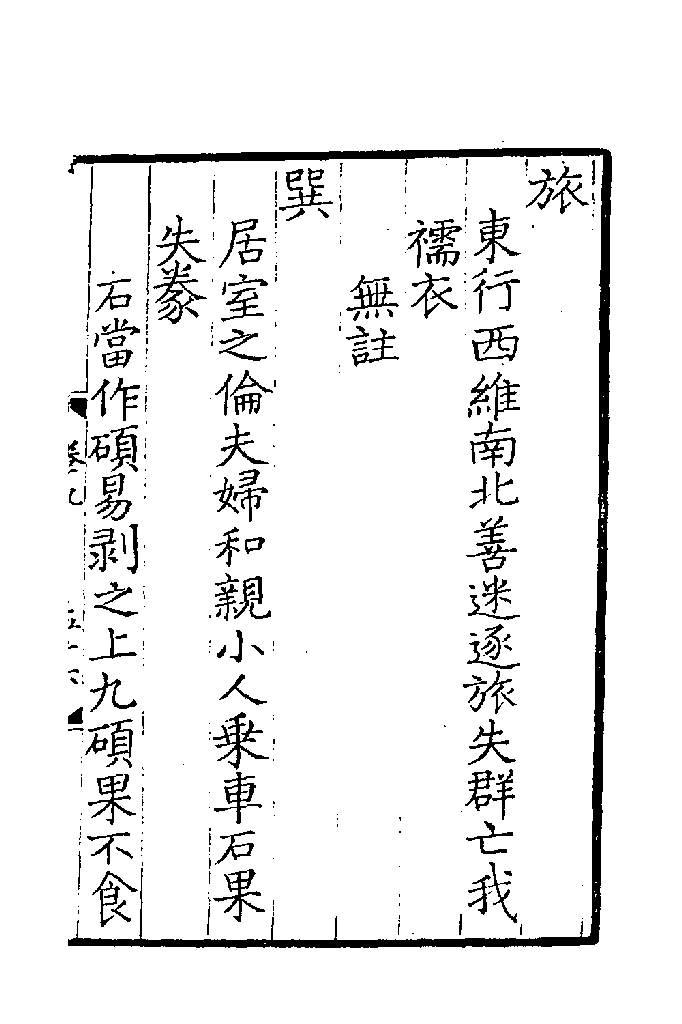 旅
東行西維南北善迷逐旅失群亡我
襦衣
無註
巽
居室之倫夫婦和親小人乗車石果
失豢
石當作碩易剥之上九碩果不食
卷九
五十六